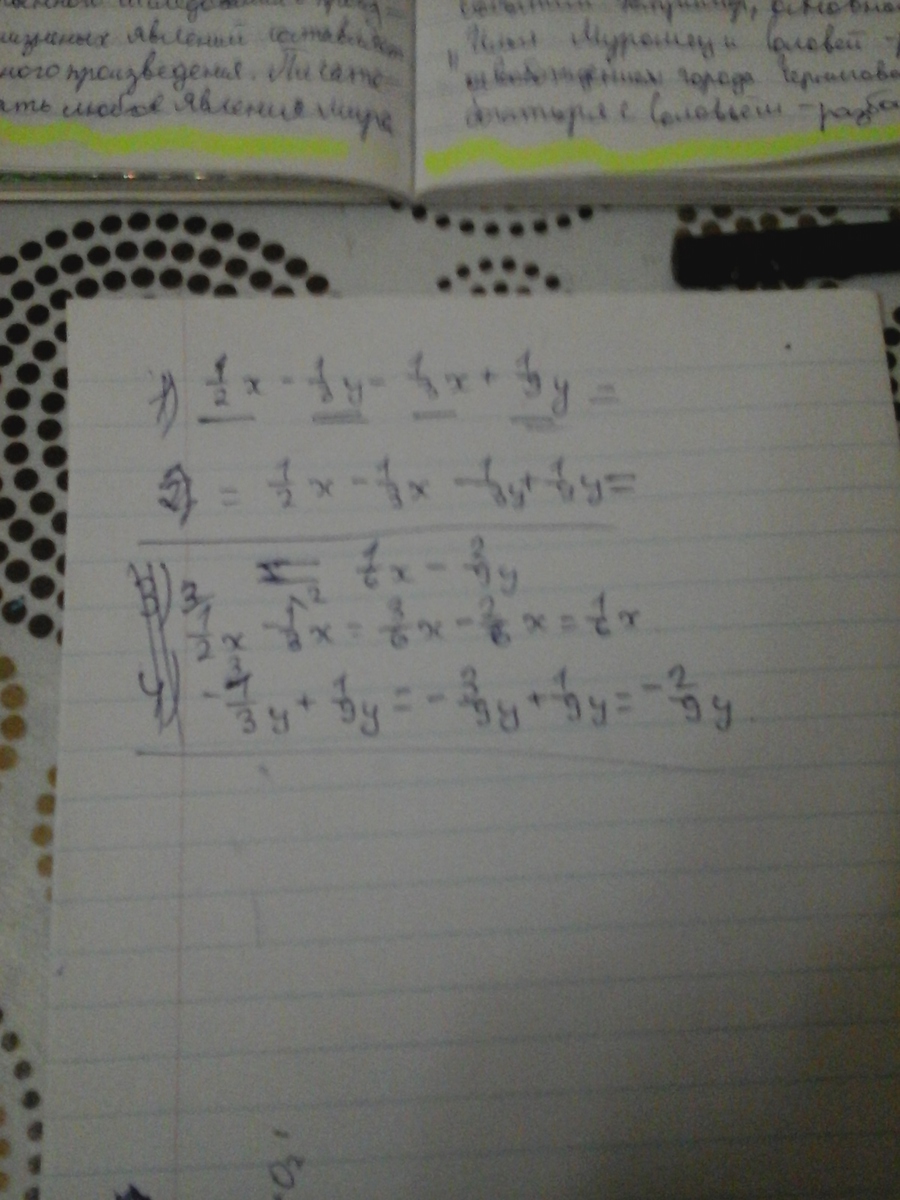 изненных явлений составляет
ного произведения. Писате-
ать любое явления мира
"Илья Муромец и Соловей -р
освобождением города Чернигова
богатыря с Соловьём -разбо
1) 1/2 x - 1/3 y - 1/3 x + 1/9 y =
2) = 1/2 x - 1/3 x - 1/3 y + 1/9 y =
= 1/6 x - 2/9 y
3) 1/2 x - 1/3 x = 3/6 x - 2/6 x = 1/6 x
4) - 1/3 y + 1/9 y = - 3/9 y + 1/9 y = - 2/9 y